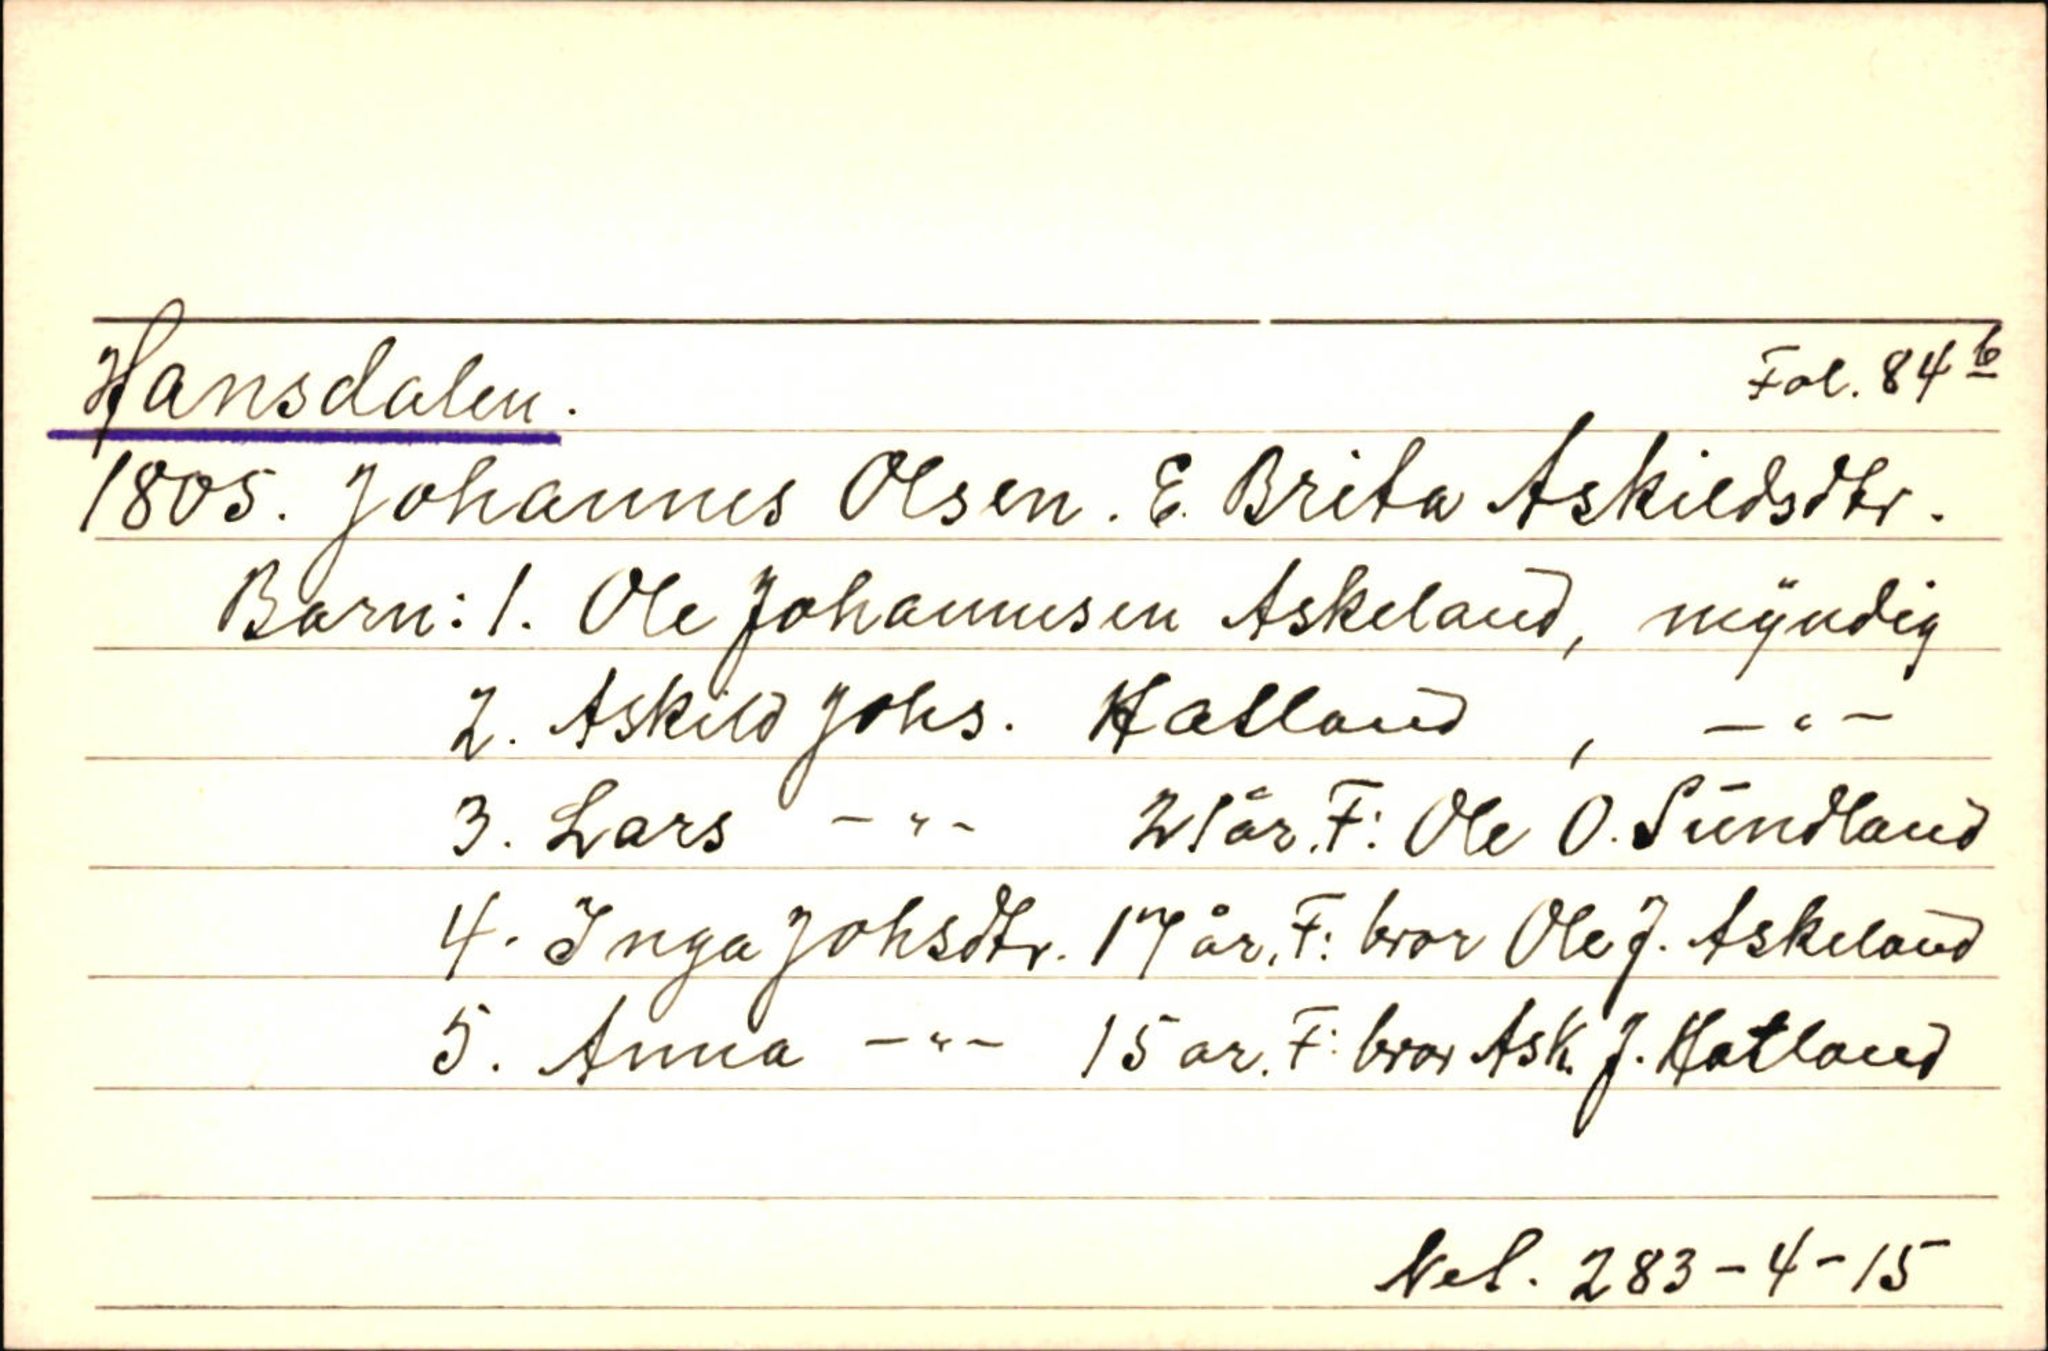 Hansdalen. Fol. 84 b
1805. Johannes Olsen. E. Brita Askildsdtr.
Barn: 1. Ole Johannesen Askeland, myndig
2. Askild Johs. Hatland, -"-
3. Lars -"- 21 år. F: Ole O. Sundland
4. Inga Johsdtr. 17 år. F: bror Ole J. Askeland
5. Anna -"- 15 ar. F: bror Ask. J. Hatland
Net. 283-4-15